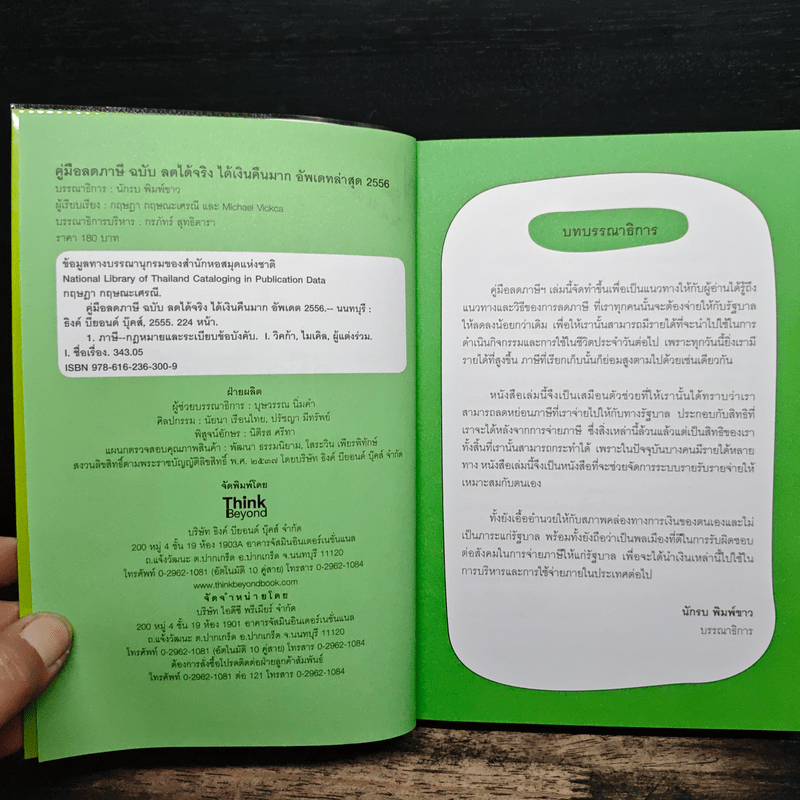 คู่มือลดภาษี ฉบับ ลดได้จริง ได้เงินคืนมาก อัพเดทล่าสุด 2556
บรรณาธิการ : นักรบ พิมพ์ขาว
ผู้เรียบเรียง : กฤษฎา กฤษณะเศรณี และ Michael Vickca
บรรณาธิการบริหาร : กรภัทร์ สุทธิดารา
ราคา 180 บาท
ข้อมูลทางบรรณานุกรมของสำนักหอสมุดแห่งชาติ
National Library of Thailand Cataloging in Publication Data
กฤษฎา กฤษณะเศรณี.
คู่มือลดภาษี ฉบับ ลดได้จริง ได้เงินคืนมาก อัพเดต 2556.-- นนทบุรี :
ธิงค์ บียอนด์ บุ๊คส์, 2555. 224 หน้า.
1. ภาษี--กฎหมายและระเบียบข้อบังคับ. I. วิคก้า, ไมเคิล, ผู้แต่งร่วม.
I. ชื่อเรื่อง. 343.05
ISBN 978-616-236-300-9
ฝ่ายผลิต
ผู้ช่วยบรรณาธิการ : บุษวรรณ นิ่มคำ
ศิลปกรรม : นัยนา เรือนไทย, ปรัชญา มีทรัพย์
พิสูจน์อักษร : นิติรส ศรีทา
แผนกตรวจสอบคุณภาพสินค้า : พัฒนา ธรรมนิยาม, ไสระวิน เพียรพิทักษ์
สงวนลิขสิทธิ์ตามพระราชบัญญัติลิขสิทธิ์ พ.ศ. ๒๕๓๗ โดยบริษัท ธิงค์ บียอนด์ บุ๊คส์ จำกัด
จัดพิมพ์โดย
Think
Beyond
บริษัท ธิงค์ บียอนด์ บุ๊คส์ จำกัด
200 หมู่ 4 ชั้น 19 ห้อง 1903A อาคารจัสมินอินเตอร์เนชั่นแนล
ถ.แจ้งวัฒนะ ต.ปากเกร็ด อ.ปากเกร็ด จ.นนทบุรี 11120
โทรศัพท์ 0-2962-1081 (อัตโนมัติ 10 คู่สาย) โทรสาร 0-2962-1084
www.thinkbeyondbook.com
จัดจำหน่ายโดย
บริษัท ไอดีซี พรีเมียร์ จำกัด
200 หมู่ 4 ชั้น 19 ห้อง 1901 อาคารจัสมินอินเตอร์เนชั่นแนล
ถ.แจ้งวัฒนะ ต.ปากเกร็ด อ.ปากเกร็ด จ.นนทบุรี 11120
โทรศัพท์ 0-2962-1081 (อัตโนมัติ 10 คู่สาย) โทรสาร 0-2962-1084
ต้องการสั่งซื้อโปรดติดต่อฝ่ายลูกค้าสัมพันธ์
โทรศัพท์ 0-2962-1081 ต่อ 121 โทรสาร 0-2962-1084
บทบรรณาธิการ
คู่มือลดภาษีฯ เล่มนี้จัดทำขึ้นเพื่อเป็นแนวทางให้กับผู้อ่านได้รู้ถึง
แนวทางและวิธีของการลดภาษี ที่เราทุกคนนั้นจะต้องจ่ายให้กับรัฐบาล
ให้ลดลงน้อยกว่าเดิม เพื่อให้เรานั้นสามารถมีรายได้ที่จะนำไปใช้ในการ
ดำเนินกิจกรรมและการใช้ในชีวิตประจำวันต่อไป เพราะทุกวันนี้ยิ่งเรามี
รายได้ที่สูงขึ้น ภาษีที่เรียกเก็บนั้นก็ย่อมสูงตามไปด้วยเช่นเดียวกัน
หนังสือเล่มนี้จึงเป็นเสมือนตัวช่วยที่ให้เรานั้นได้ทราบว่าเรา
สามารถลดหย่อนภาษีที่เราจ่ายไปให้กับทางรัฐบาล ประกอบกับสิทธิที่
เราจะได้หลังจากการจ่ายภาษี ซึ่งสิ่งเหล่านี้ล้วนแล้วแต่เป็นสิทธิของเรา
ทั้งสิ้นที่เรานั้นสามารถกระทำได้ เพราะในปัจจุบันบางคนมีรายได้หลาย
ทาง หนังสือเล่มนี้จึงเป็นหนังสือที่จะช่วยจัดการระบบรายรับรายจ่ายให้
เหมาะสมกับตนเอง
ทั้งยังเอื้ออำนวยให้กับสภาพคล่องทางการเงินของตนเองและไม่
เป็นภาระแก่รัฐบาล พร้อมทั้งยังถือว่าเป็นพลเมืองที่ดีในการรับผิดชอบ
ต่อสังคมในการจ่ายภาษีให้แก่รัฐบาล เพื่อจะได้นำเงินเหล่านี้ไปใช้ใน
การบริหารและการใช้จ่ายภายในประเทศต่อไป
นักรบ พิมพ์ขาว
บรรณาธิการ